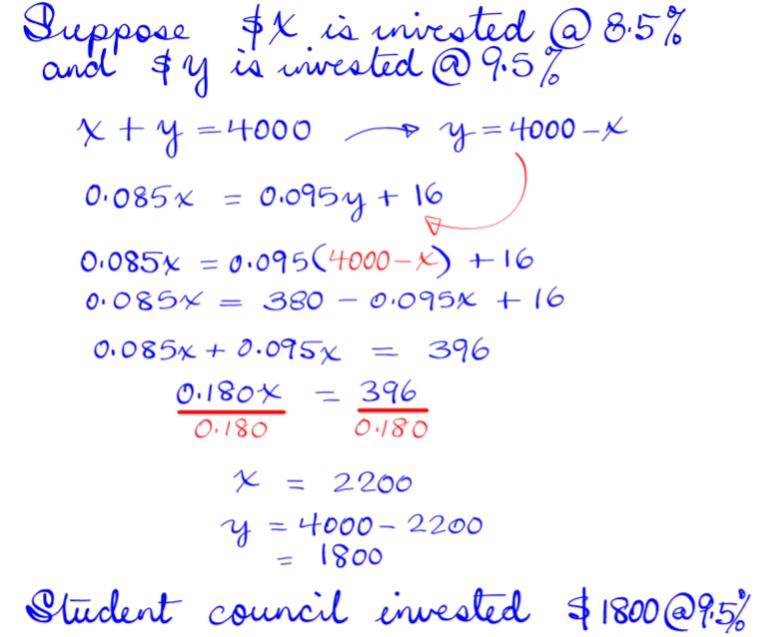 Suppose $X is invested @ 8.5%
and $y is invested @ 9.5%
x + y = 4000 → y = 4000 - x
0.085x = 0.095y + 16
0.085x = 0.095(4000 - x) + 16
0.085x = 380 - 0.095x + 16
0.085x + 0.095x = 396
0.180x = 396
0.180 0.180
x = 2200
y = 4000 - 2200
= 1800
Student council invested $1800 @ 9.5%